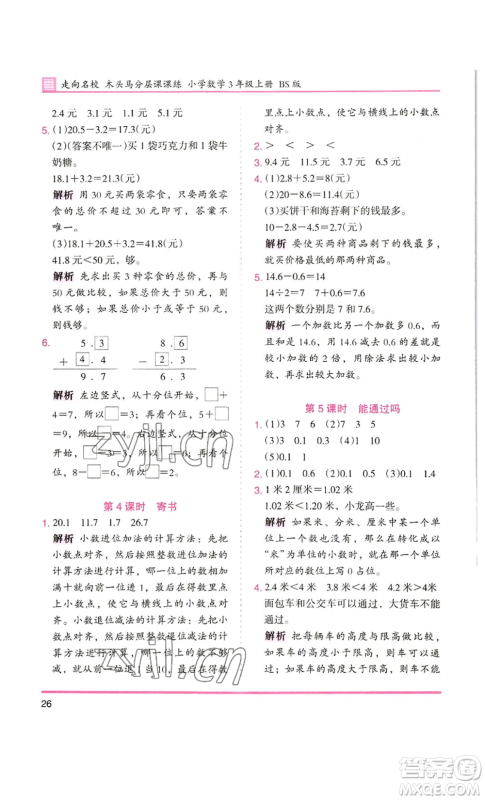 走向名校 木头马分层课课练 小学数学3年级上册 BS版
2.4元 3.1元 5.1元 4元
5. (1)20.5-3.2=17.3(元)
(2)(答案不唯一)买1袋巧克力和1袋牛
奶糖。
18.1+3.2=21.3(元)
解析 用30元买两袋零食,那么两袋零
食的总价不超过30元即可,答案不
唯一。
(3)18.1+3.2+20.5=41.8(元)
41.8元<50元,够。
解析 先求出买3种零食的总价,再与
50元做比较,如果总价小于50元,
则钱不够;如果总价小于50元,
则钱够。
6. 5.3 8.6
+ 4.4 - 2.3
9.7 6.3
解析 左边竖式,从十分位开始,□
+4=7,所以□=3,个位上,5+□
=9,所以□=4。右边竖式,从十分
位开始,□
=6,所以□=2。
第4课时 寄书
1. 20.1 11.7 1.1 26.7
解析 小数进位加法的计算方法:先把
小数点对齐,然后按照整数进位加法的
计算方法进行计算,哪一位上的数相加
满十就向前一位进1,最后在得数里点
上小数点。小数退位减法的计算方法:
先把小数点对齐,然后按照整数退位减
法的计算方法进行计算,哪一位不够
减,就从前一位退1当10,最后在得数
里点上小数点,并与竖式中的小数点
对齐。
2. > < >
3. 9.4元 11.5元 3.7元 1.6元
4. (1)2.8+5.2=8(元)
(2)20-8=12(元)
(3)买饼干和海苔剩下的钱最多。
10-2.8-4.5=2.7(元)
解析 要使买两种商品剩下的钱最多,
就买价格最低的两种商品。
5. 14.6-0.6=14
14÷2=7 7+0.6=7.6
这两个数分别是7和7.6。
解析 一个加数比另一个加数大0.6,
且和是14.6,用和减去0.6的差就是
较小加数的2倍,用除法求出较小加
数,再用加法求出较大加数。
第5课时 能通过吗
1. (1)3 7 6 (2)7 3 5
(3)1 0.1 (4)3 0.3
(5)0.1
2. (1)0.1 0.6 (2)0.1 1.4
3. 1米2厘米=1.02米
1.02米<1.30米,小龙高一些。
解析 如果米、分米、厘米中,其中一个
或者两个单位上没有数,那么在转化成以
“米”为单位的小数时,应在这个单位所
对应的数位上写0占位。
4. 2.4米<4米 3.8米<4米 4.2米>4米
面包车和公交车可以通过,大货车不能
通过。
解析 把每辆车的高度与限高做比较,
如果车的高度小于限高,则车能通过;
如果车的高度大于限高,则车不能
26
zyjl.cn
答案圈
MXQE.COM